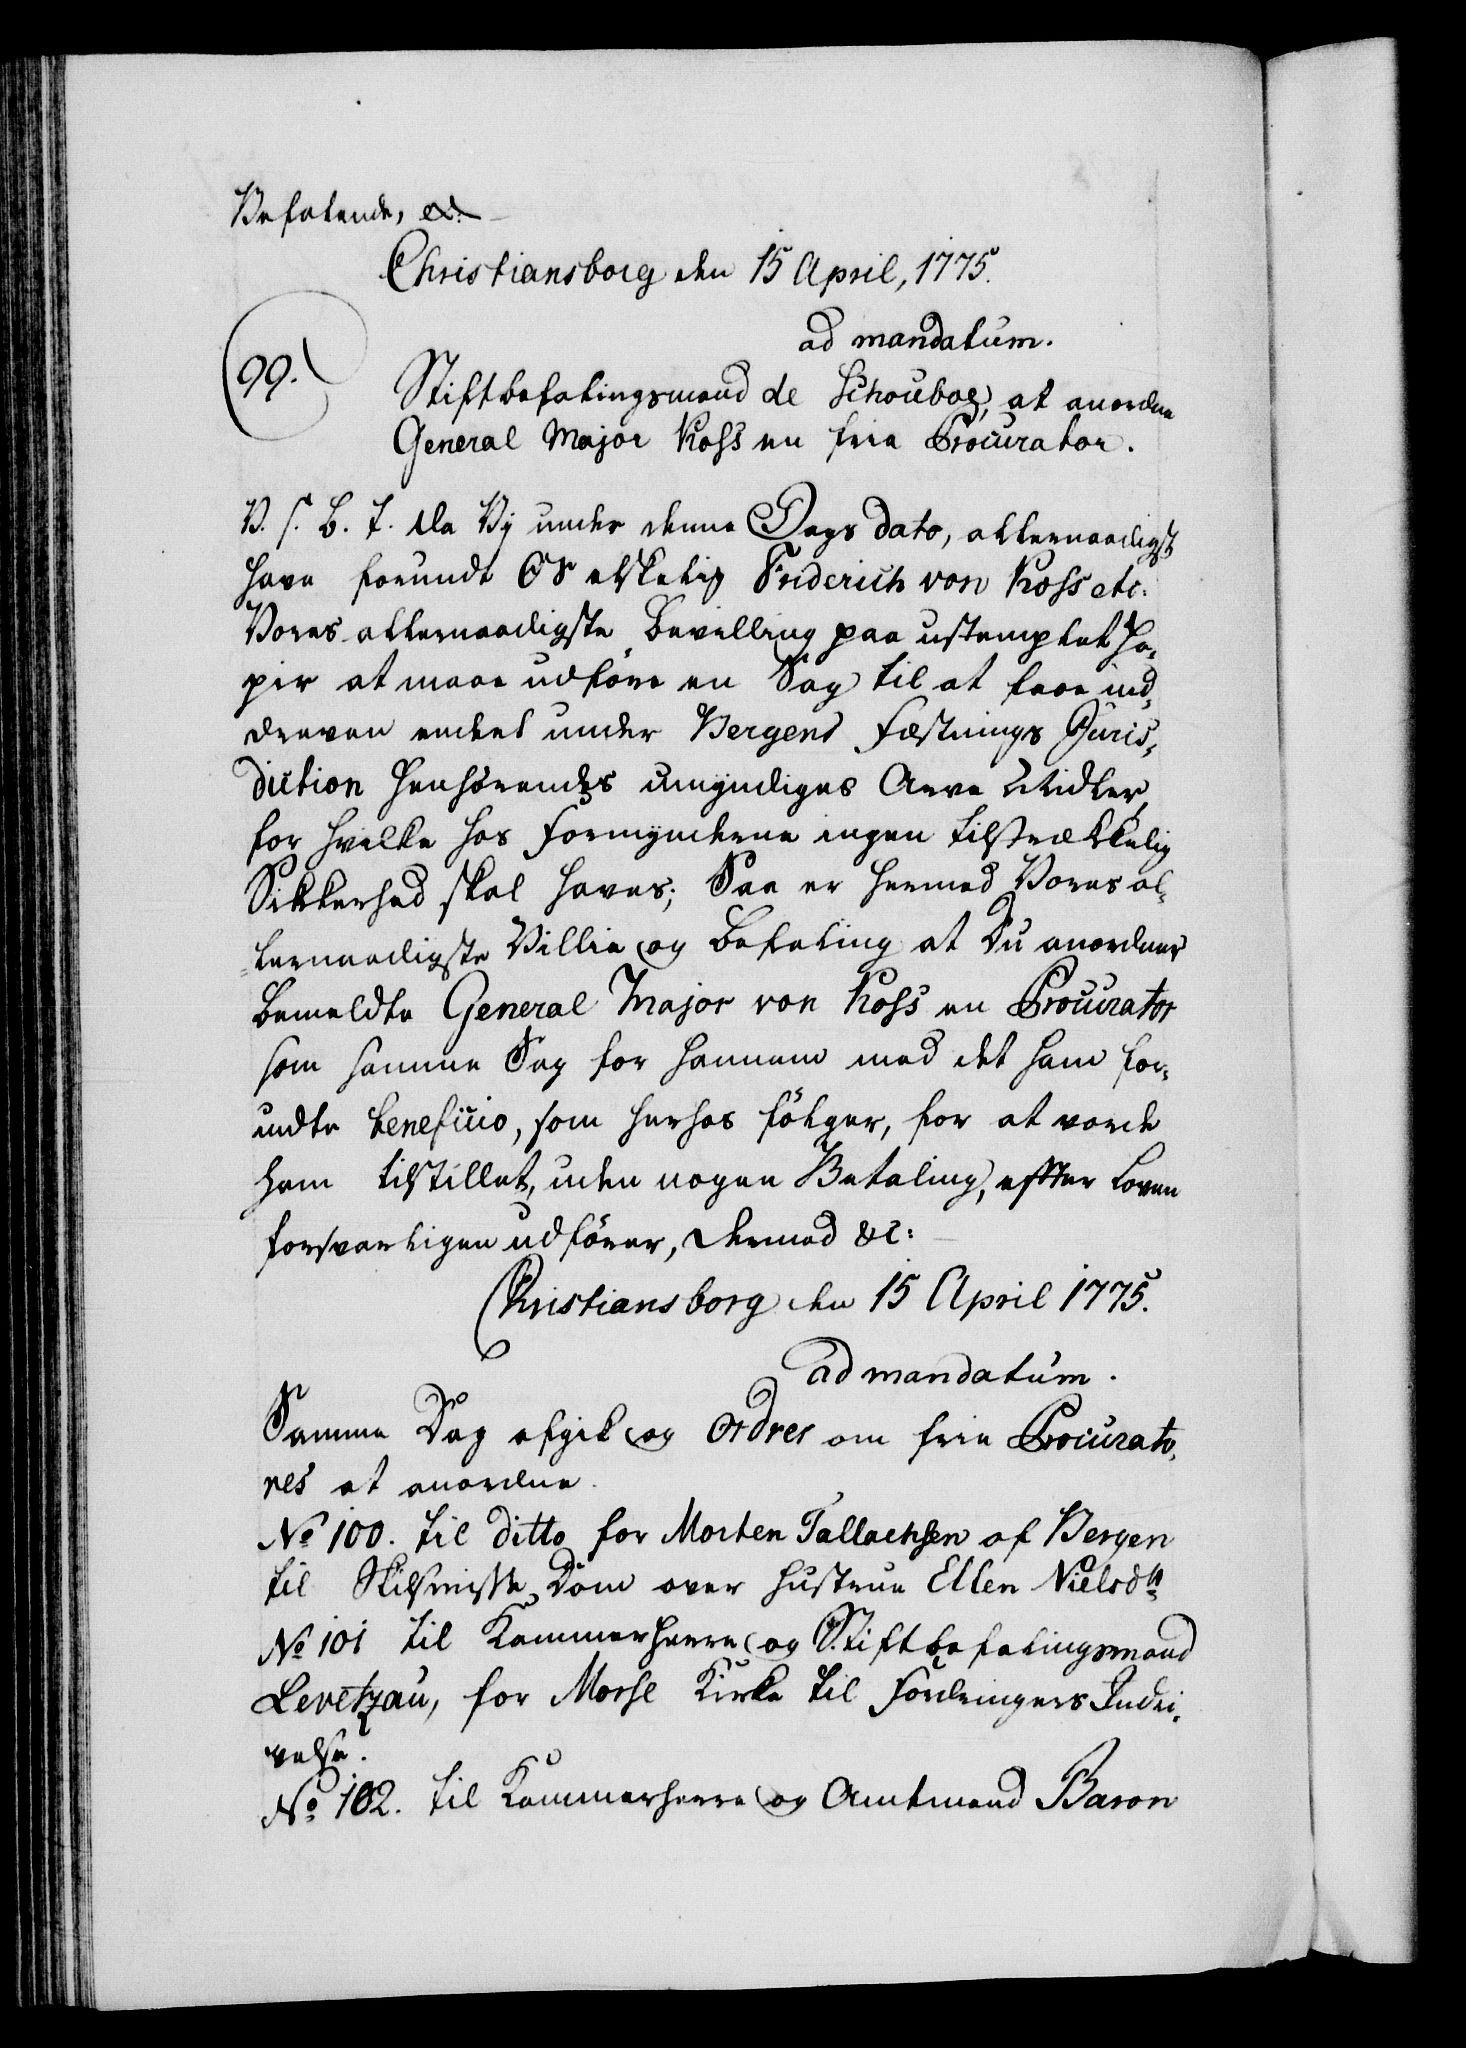 Befalende, &c.
Christiansborg den 15 April, 1775.
ad mandatum.
99.
Stiftbefalingsmand de Schouboe, at anordne
General Major Koss en frie Procurator.
V. S. B. T. da Vj under denne Dags dato, allernaadigst
have forundt Os elskelig Friderich von Koss etc:
Vores allernaadigste Bevilling paa ustemplet Pa-
pir at maae udføre en Sag til at faae ind-
dreven endeel under Bergens Fæstnings Juris-
diction henhørendes umyndiges Arve Midler,
for hvilke hos Formynderne ingen tilstrækkelig
Sikkerhed skal haves; Saa er hermed Vores al-
lernaadigste Villie og Befaling at Du anordner
bemeldte General Major von Koss en Procurator
som samme Sag for hannem med det ham for-
undte beneficio, som herhos følger, for at vorde
ham tilstillet, uden nogen Betaling, effter Loven
forsvarligen udfører, dermed &c:
Christiansborg den 15 April 1775.
ad mandatum.
Samme Dag afgik og Ordres om frie Procurato-
res at anordne.
No 100. til ditto for Morten Tallachsen af Bergen
til Skilsmisse Dom over Hustrue Ellen Nielsdtr
No 101 til Kammerherre og Stiftbefalingsmand
Levetzau, for Morse Kirke til Fordringers Inddri-
velse.
No 102. til Kammerherre og Amtmand Baron